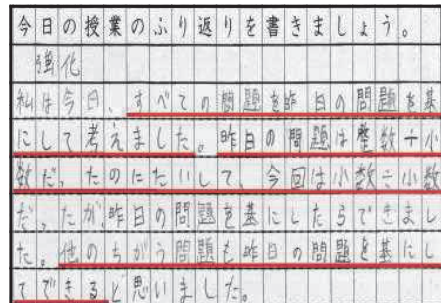 今日の授業のふり返りを書きましょう。
強化
私は今日、すべての問題を昨日の問題を基
にして考えました。昨日の問題は整数÷小
数だ。たのにたいして、今回は小数÷小数
だ。たが、昨日の問題を基にしたらできまし
た。他のちがう問題も昨日の問題を基にし
てできると思いました。